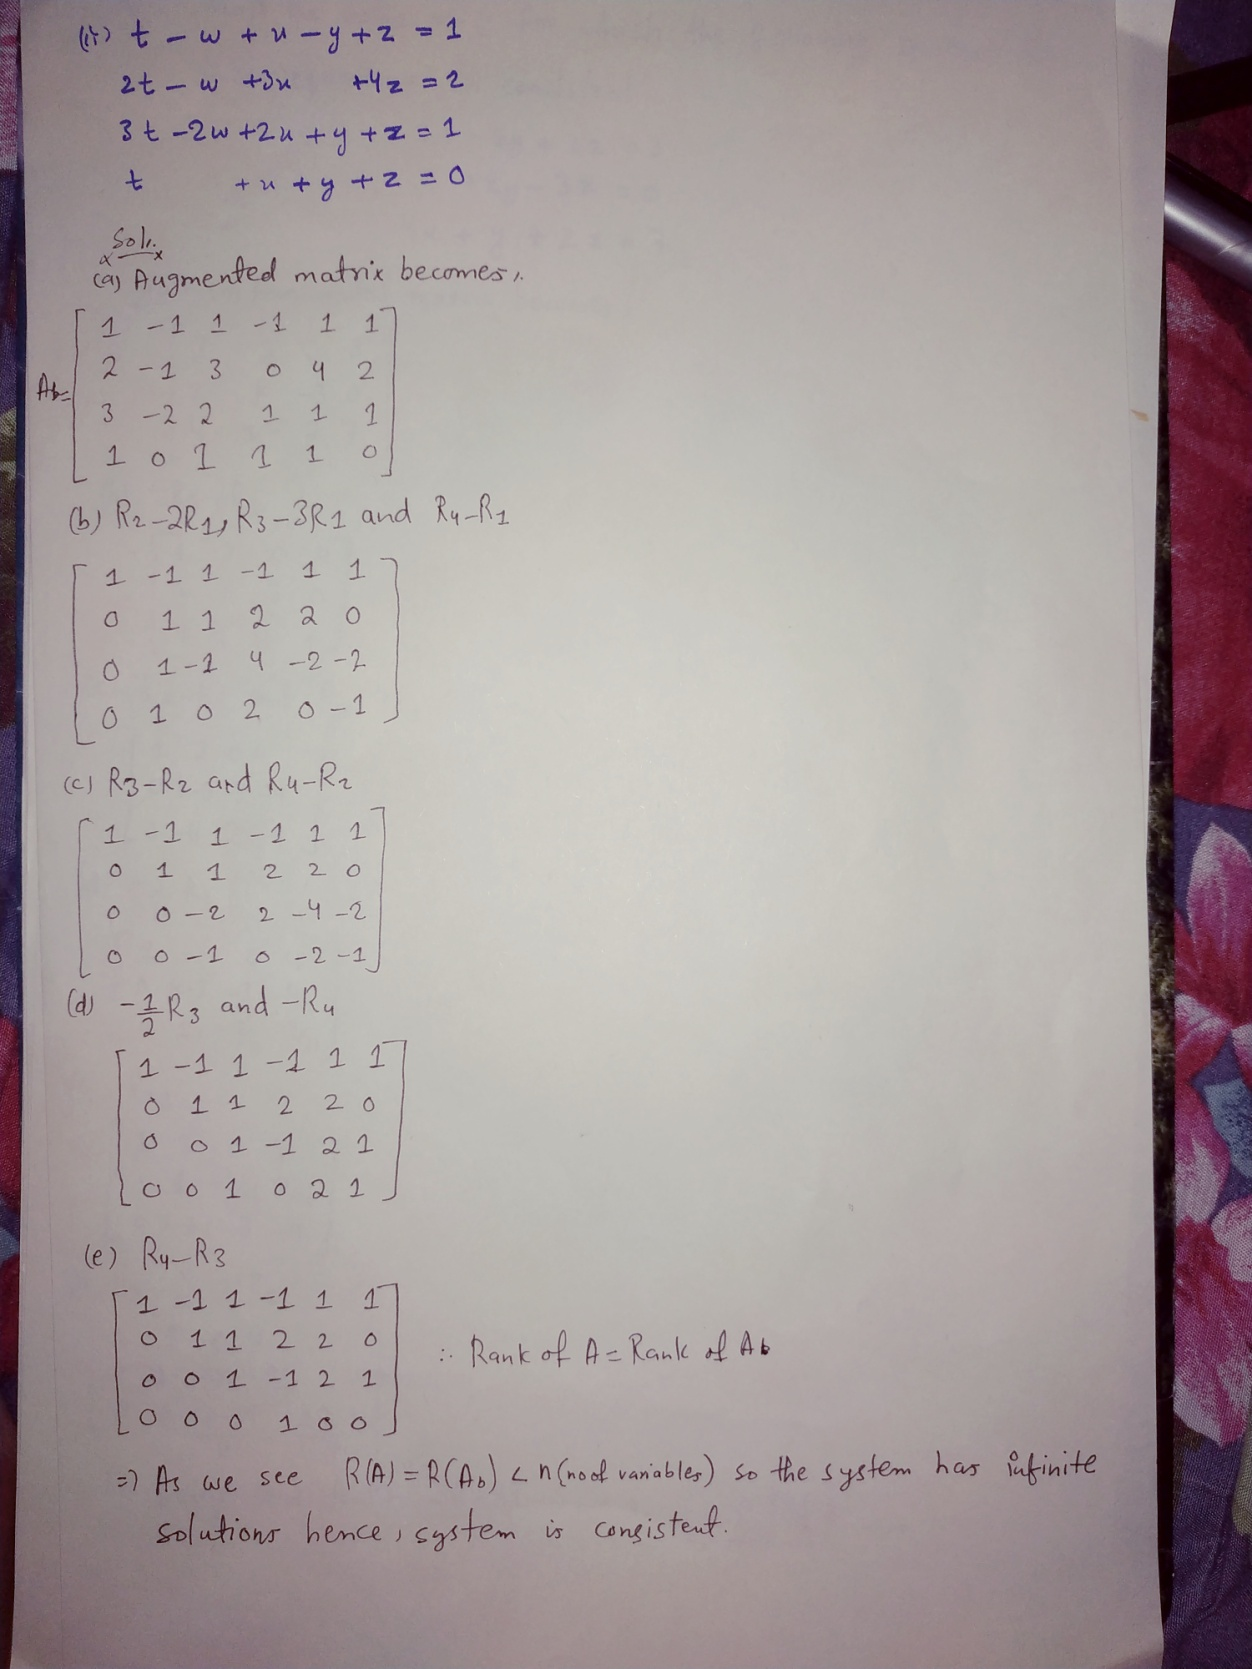 (ii) t - w + u - y + z = 1
2t - w + 3u + 4z = 2
3t - 2w + 2u + y + z = 1
t + u + y + z = 0
Sol.
(a) Augmented matrix becomes,
1 -1 1 -1 1 1
2 -1 3 0 4 2
Ab=
3 -2 2 1 1 1
1 0 1 1 1 0
(b) R2-2R1, R3-3R1 and R4-R1
1 -1 1 -1 1 1
0 1 1 2 2 0
0 1 -1 4 -2 -2
0 1 0 2 0 -1
(c) R3-R2 and R4-R2
1 -1 1 -1 1 1
0 1 1 2 2 0
0 0 -2 2 -4 -2
0 0 -1 0 -2 -1
(d) -1/2 R3 and -R4
1 -1 1 -1 1 1
0 1 1 2 2 0
0 0 1 -1 2 1
0 0 1 0 2 1
(e) R4-R3
1 -1 1 -1 1 1
0 1 1 2 2 0
∴ Rank of A = Rank of Ab
0 0 1 -1 2 1
0 0 0 1 0 0
=) As we see R(A) = R(Ab) < n (no of variables) so the system has infinite
solutions hence, system is consistent.